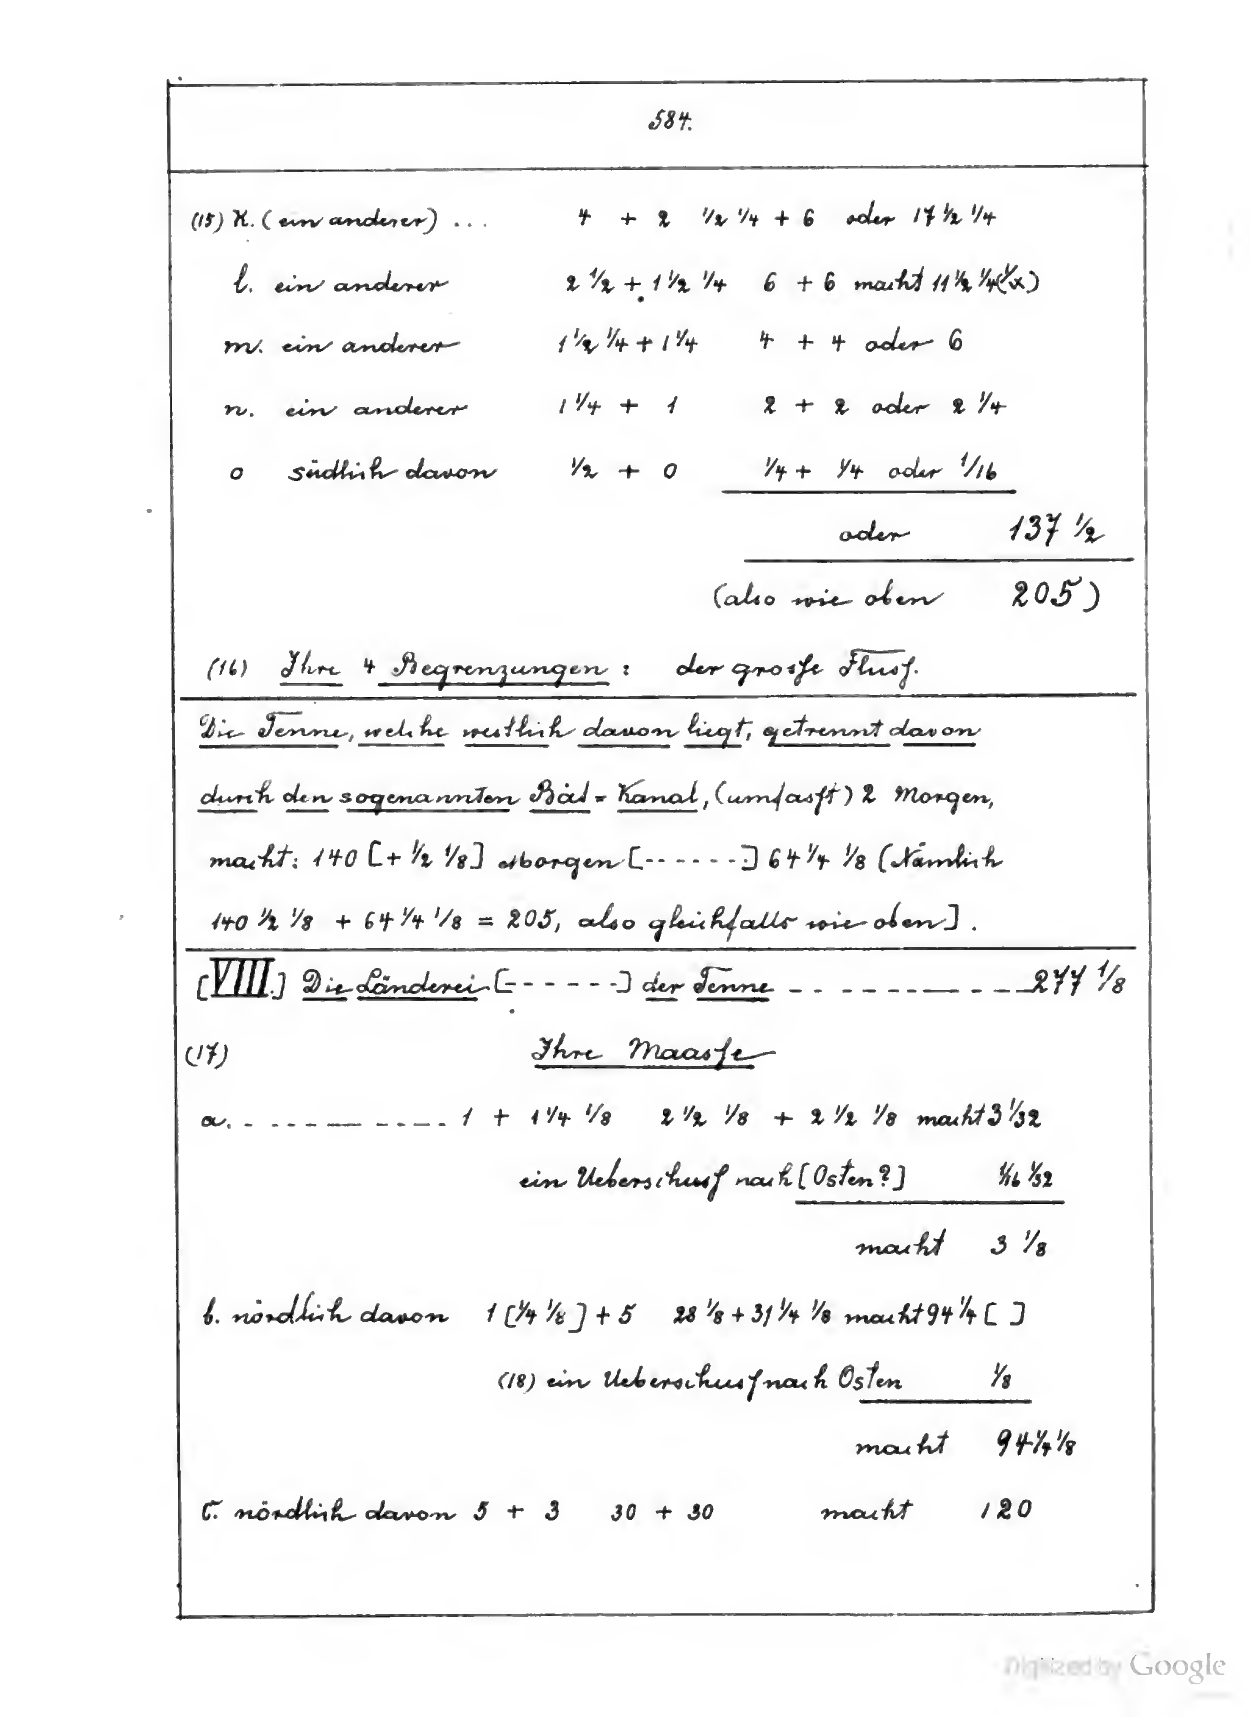 584.
(15) K. (ein anderer) ... 4 + 2 ½ ¼ + 6 oder 17 ½ ¼
l. ein anderer 2 ½ + 1 ½ ¼ 6 + 6 macht 11 ½ ¼
m. ein anderer 1 ½ ¼ + 1 ¼ 4 + 4 oder 6
n. ein anderer 1 ¼ + 1 2 + 2 oder 2 ¼
o südlich davon ½ + 0 ¼ + ¼ oder 1/16
oder 137 ½
(also wie oben 205)
(16) Ihre 4 Begrenzungen: der grosse Fluss.
Die Tenne, welche westlich davon liegt, getrennt davon
durch den sogenannten Bàd-Kanal, (umfasst) 2 Morgen,
macht: 140 [+ ½ ⅛] verborgen [------] 64 ¼ ⅛ (Nämlich
140 ½ ⅛ + 64 ¼ ⅛ = 205, also gleichfalls wie oben].
[VIII.] Die Länderei [------] der Tenne ------------ 277 ⅛
(17) Ihre Maasse
a. ------------ 1 + 1 ¼ ⅛ 2 ½ ⅛ + 2 ½ ⅛ macht 3 1/32
ein Ueberschuss nach [Osten?] 1/16 1/32
macht 3 ⅛
b. nördlich davon 1 [¼ ⅛] + 5 28 ⅛ + 31 ¼ ⅛ macht 94 ¼ [ ]
(18) ein Ueberschuss nach Osten ⅛
macht 94 ¼ ⅛
C. nördlich davon 5 + 3 30 + 30 macht 120
Digitized by Google